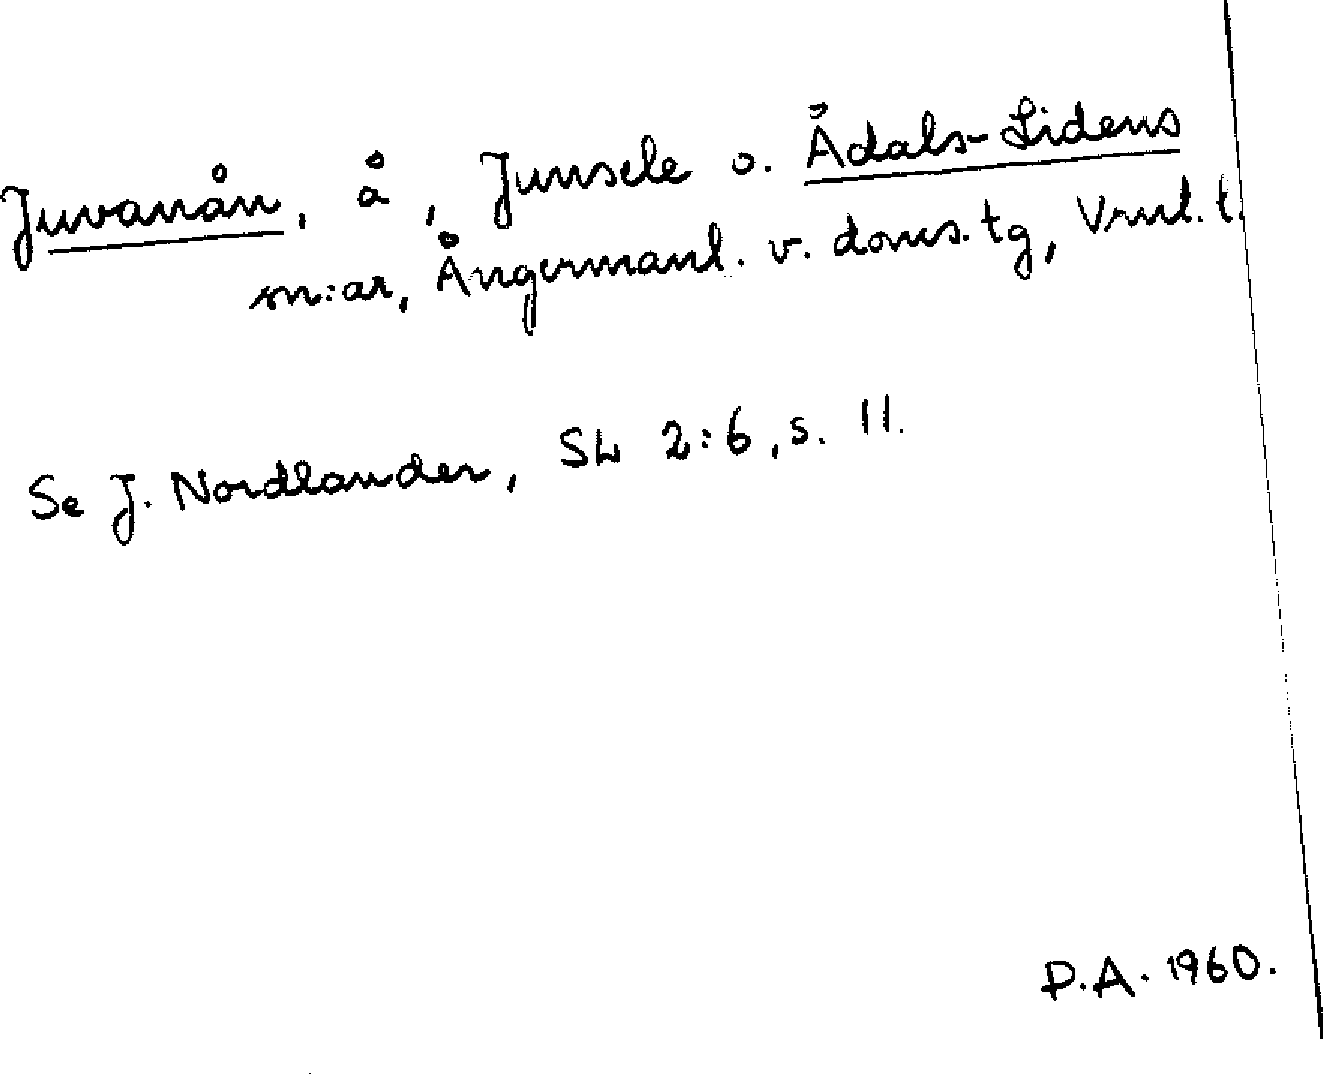 Juvanån, å, Junsele o. Ådals-Lidens
sn:ar, Ångermanl. v. doms. tg, Vrnl. l.
Se J. Nordlander, SL 2:6, s. 11.
P.A. 1960.